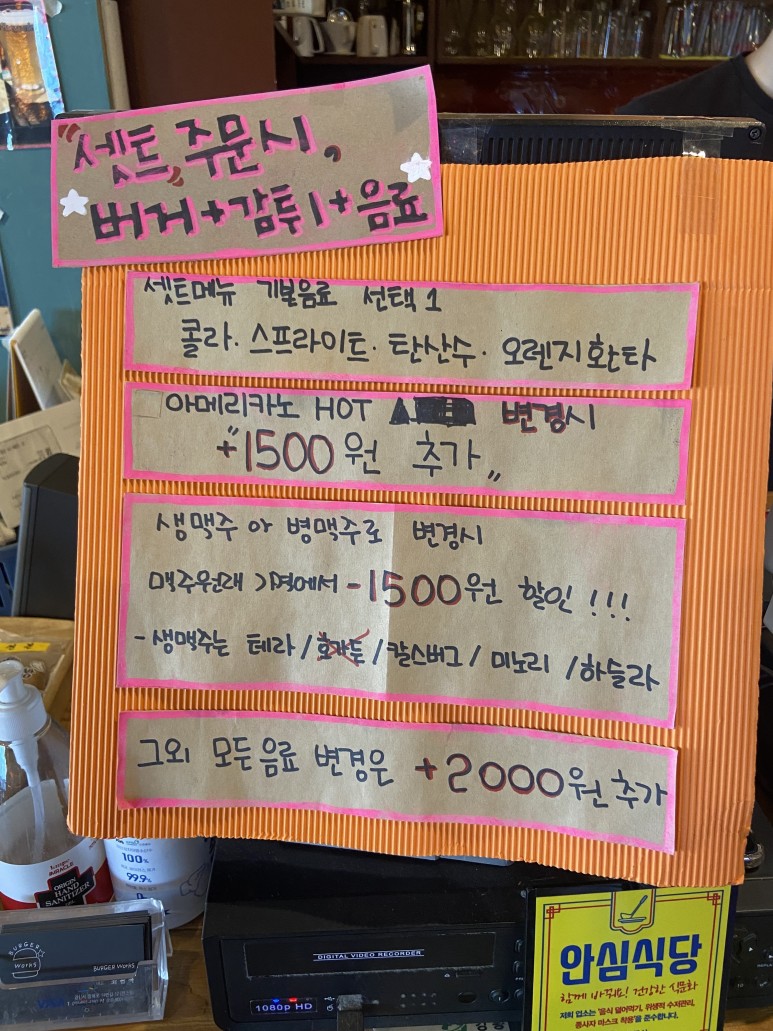 "셋트" 주문시,
버거+감튀1+음료
셋트메뉴 기본음료 선택1
콜라. 스프라이트. 탄산수. 오렌지환타
아메리카노 HOT 변경시
"+1500원 추가"
생맥주 아 병맥주로 변경시
맥주원래 가격에서 -1500원 할인!!!
-생맥주는 테라/호가든/칼스버그/미노리/하슬라
그외 모든음료 변경은 +2000원추가
100%
99.9%
ORIGIN
HAND
SANITIZER
BURGERS
WORKS
BURGER WORKS
DIGITAL VIDEO RECORDER
1080p HD
안심식당
함께 바꿔요! 건강한 식문화
저희 업소는 '음식 덜어먹기, 위생적 수저관리,
종사자 마스크 착용'을 준수합니다.